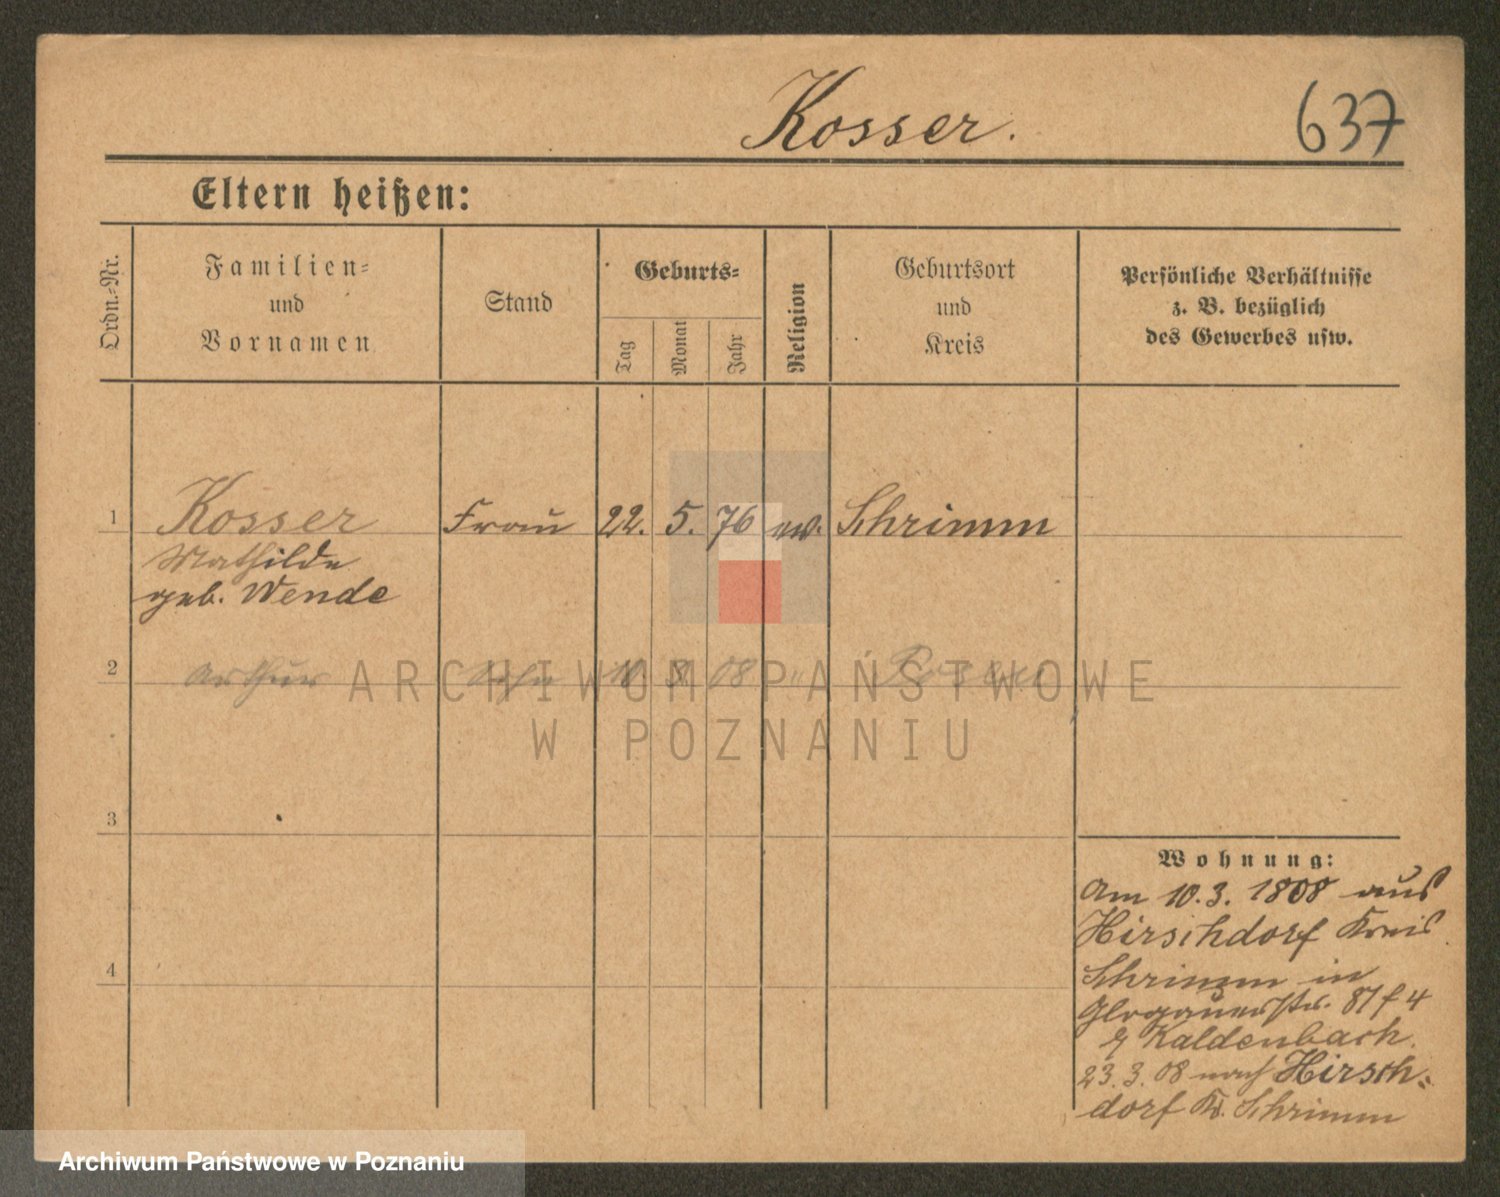 Kosser.
637
Eltern heißen:
Ordn.-Nr.
Familien-
und
Vornamen
Stand
Geburts-
Tag
Monat
Jahr
Religion
Geburtsort
und
Kreis
Persönliche Verhältnisse
z. B. bezüglich
des Gewerbes usw.
1 Kosser Frau 22. 5. 76 ev. Schrimm
Mathilde
geb. Wende
2 Arthur Sohn 10 3 08 " Posen
ARCHIWUM PAŃSTWOWE
W POZNANIU
3
Wohnung:
Am 10.3. 1808 aus
Hirschdorf Kreis
4
Schrimm in
Glogauerstr. 87 f 4
Kaldenbach.
23.3. 08 nach Hirsch-
dorf Kr. Schrimm
Archiwum Państwowe w Poznaniu